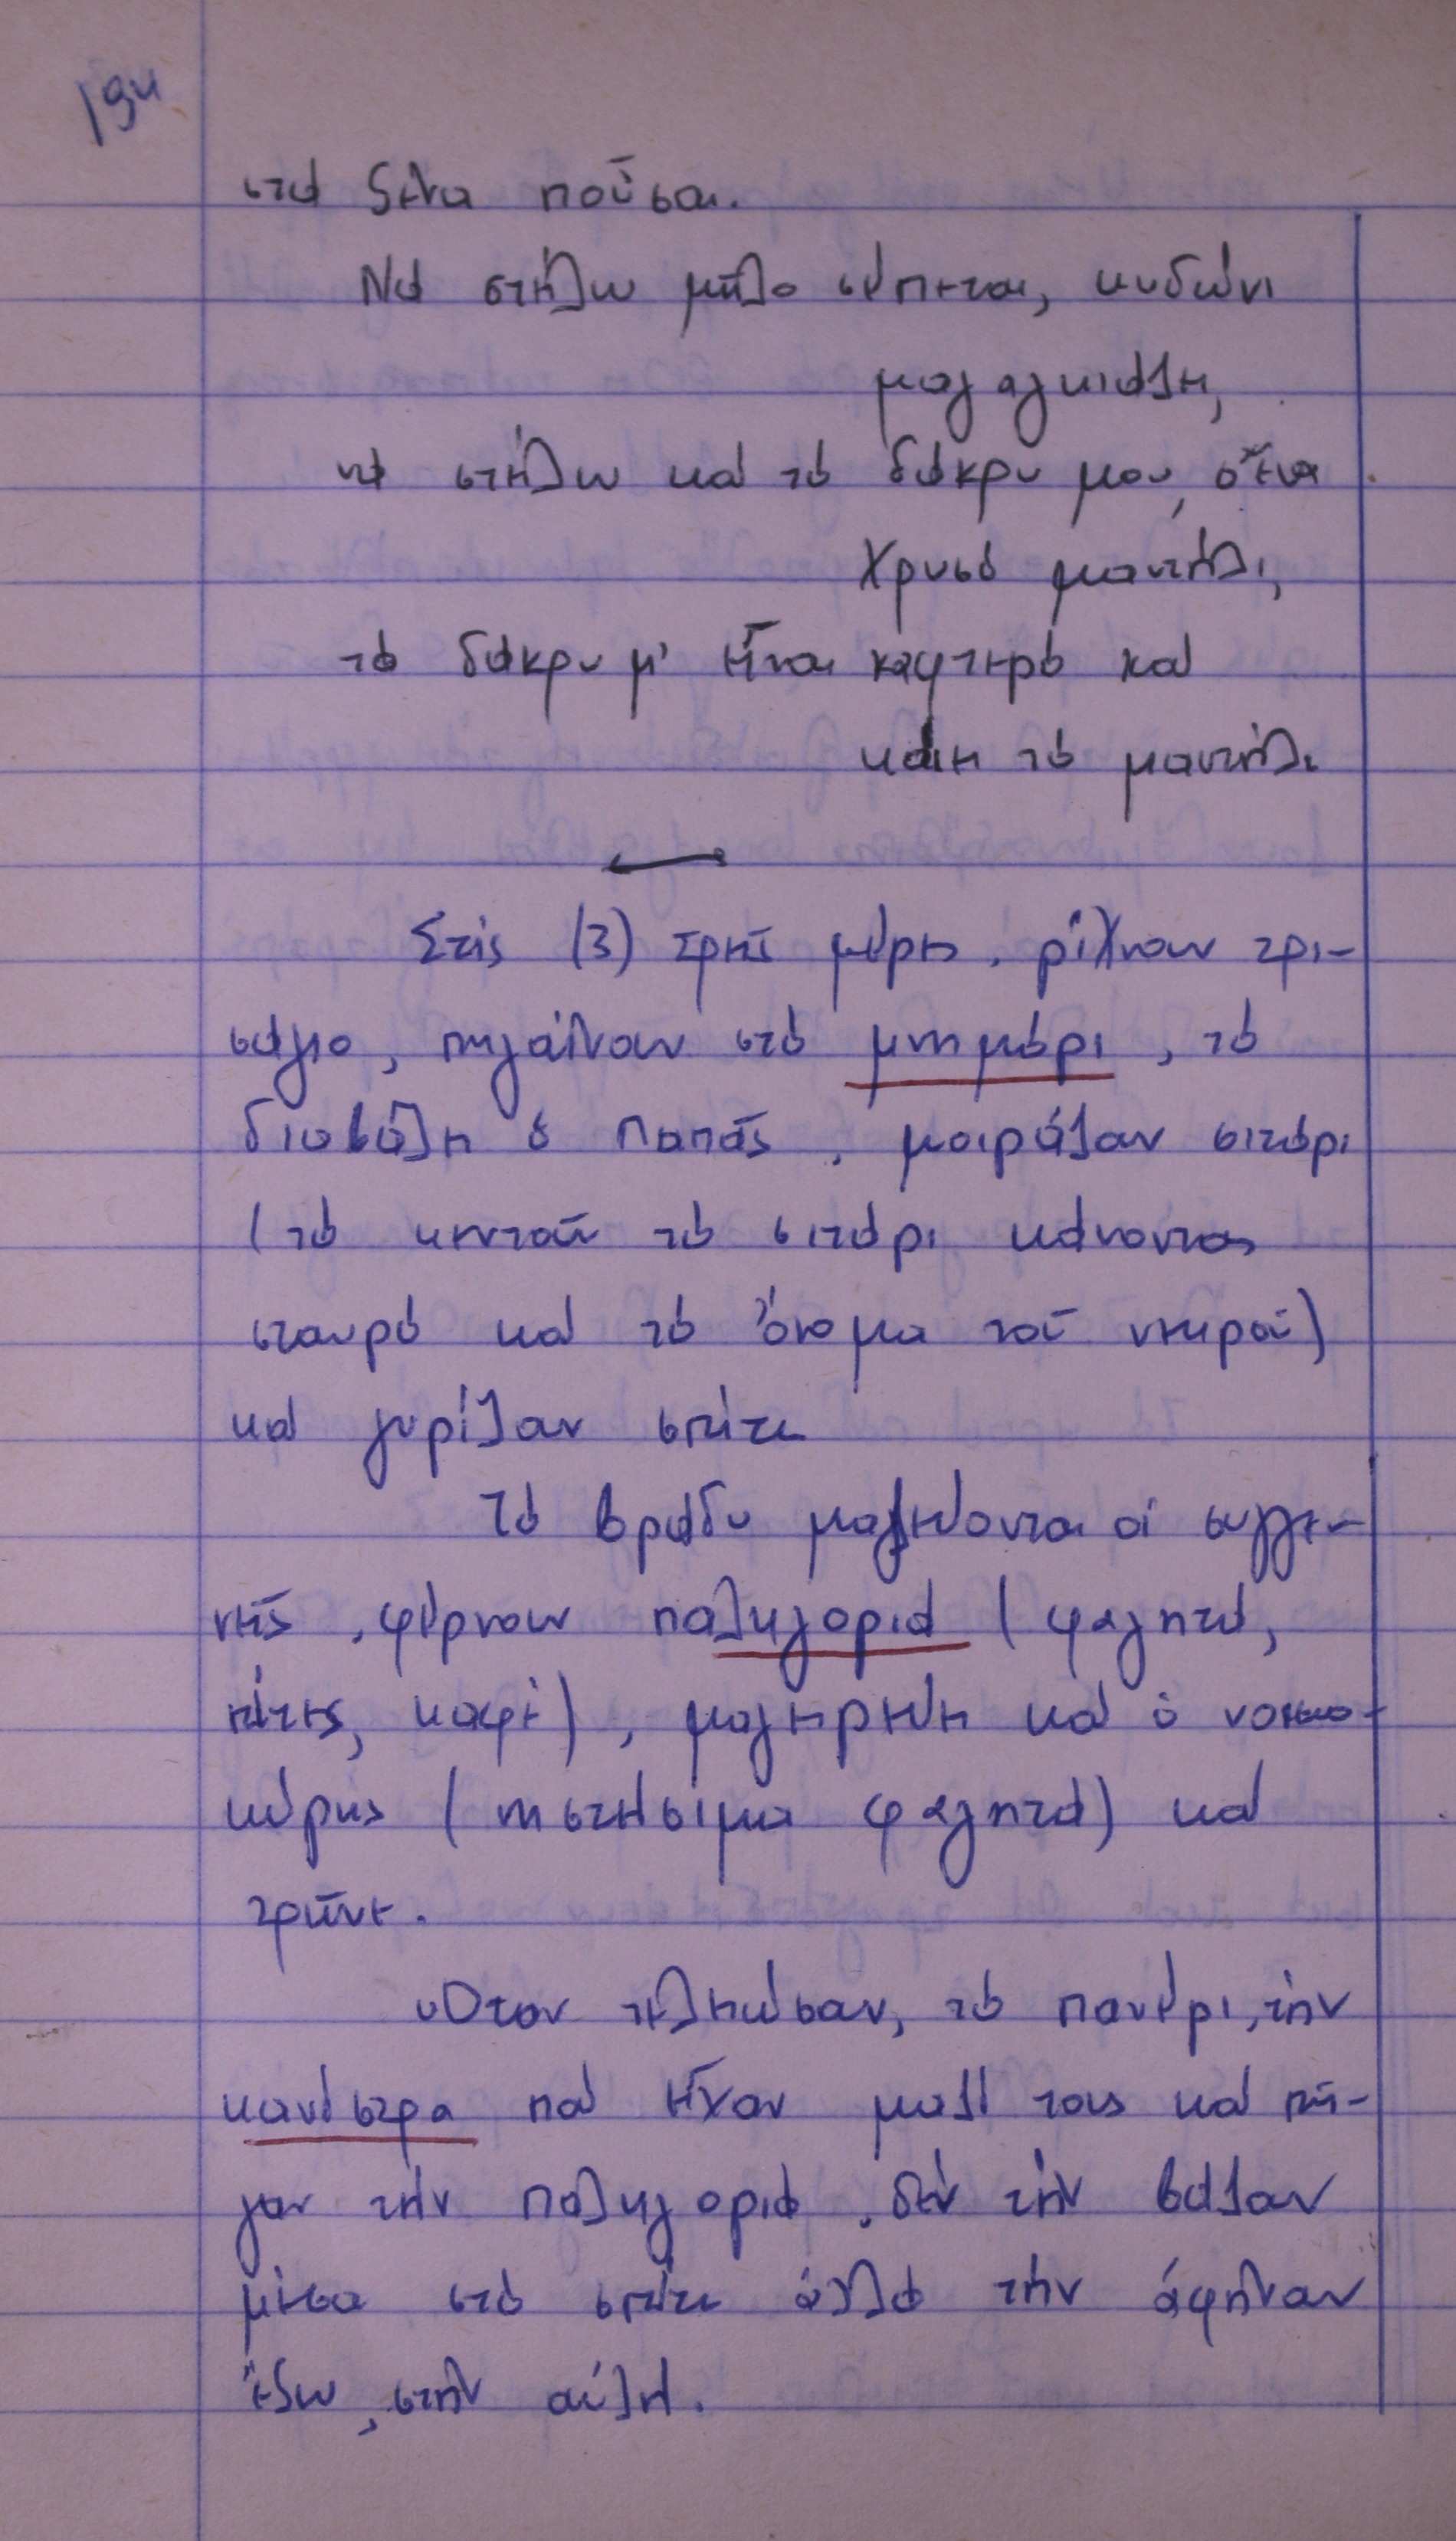 194
στά ξένα ποὖσαι.
Νά στείλω μῆλο σέπεται, κυδώνι
μαραγκιάζει,
νά στείλω καί τό δάκρυ μου, σ' ἕνα
χρυσό μαντήλι,
τό δάκρυ μ' εἶναι καφτερό καί
καίει τό μαντήλι.
Στίς (3) τρεῖς μέρες, ρίχνουν τρι-
σάγιο, πηγαίνουν στό μνημόρι, τό
διαβάζει ὁ παπᾶς, μοιράζαν σιτάρι
(τό κεντοῦν τό σιτάρι κάνοντας
σταυρό καί τό ὄνομα τοῦ νεκροῦ)
καί γυρίζαν σπίτι.
Τό βράδυ μαζεύονται οἱ συγγε-
νεῖς, φέρνουν παληγοριά (φαγητό,
πίτες, καφέ), μαγειρεύει καί ὁ νοικο-
κύρης (νηστήσιμα φαγητά) καί
τρῶνε.
Ὅταν τελειώσαν, τό πανέρι, τήν
κανίστρα πού εἶχαν μαζί τους καί πῆ-
γαν τήν παληγοριά, δέν τήν βάζαν
μέσα στό σπίτι ἀλλά τήν ἀφῆναν
ἔξω, στήν αὐλή.